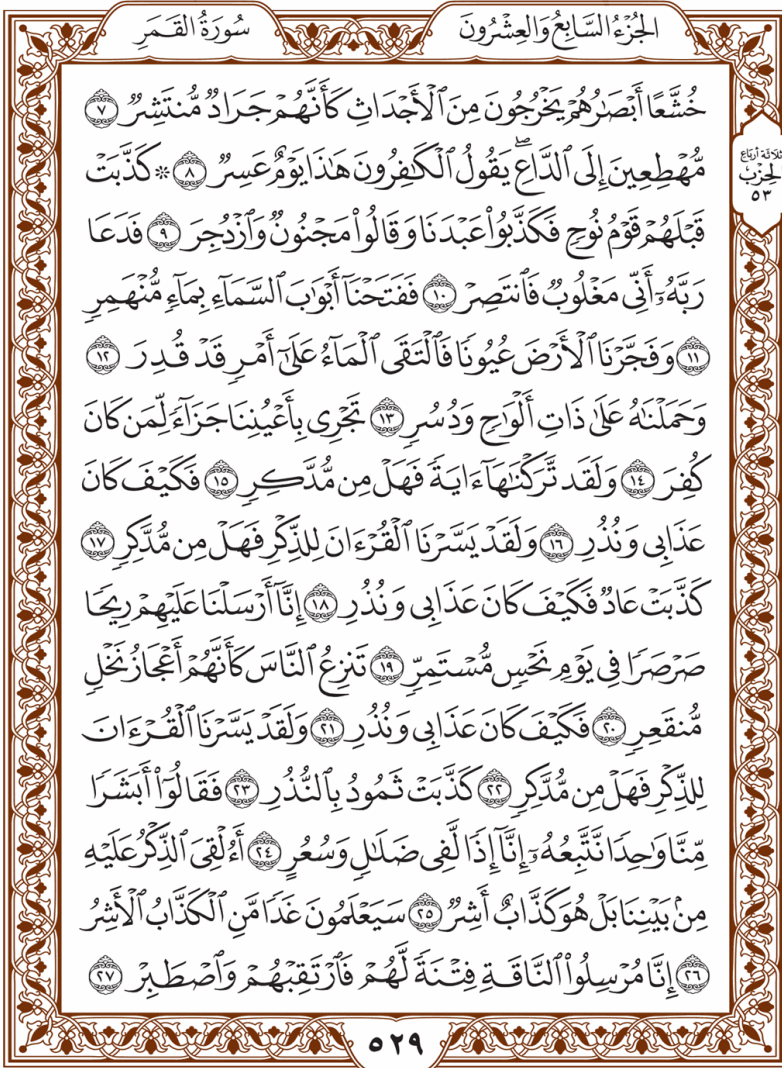 الجُزْءُ السَّابِعُ وَالعِشْرُونَ
سُورَةُ القَمَرِ
خُشَّعًا أَبْصَٰرُهُمْ يَخْرُجُونَ مِنَ ٱلْأَجْدَاثِ كَأَنَّهُمْ جَرَادٌ مُّنتَشِرٌ ٧
مُّهْطِعِينَ إِلَى ٱلدَّاعِۖ يَقُولُ ٱلْكَٰفِرُونَ هَٰذَا يَوْمٌ عَسِرٌ ٨ ۞ كَذَّبَتْ
ثلاثة أرباع
الحزب
٥٣
قَبْلَهُمْ قَوْمُ نُوحٍ فَكَذَّبُوا۟ عَبْدَنَا وَقَالُوا۟ مَجْنُونٌ وَٱزْدُجِرَ ٩ فَدَعَا
رَبَّهُۥٓ أَنِّى مَغْلُوبٌ فَٱنتَصِرْ ١٠ فَفَتَحْنَآ أَبْوَٰبَ ٱلسَّمَآءِ بِمَآءٍ مُّنْهَمِرٍ
١١ وَفَجَّرْنَا ٱلْأَرْضَ عُيُونًا فَٱلْتَقَى ٱلْمَآءُ عَلَىٰٓ أَمْرٍ قَدْ قُدِرَ ١٢
وَحَمَلْنَٰهُ عَلَىٰ ذَاتِ أَلْوَٰحٍ وَدُسُرٍ ١٣ تَجْرِى بِأَعْيُنِنَا جَزَآءً لِّمَن كَانَ
كُفِرَ ١٤ وَلَقَد تَّرَكْنَٰهَآ ءَايَةً فَهَلْ مِن مُّدَّكِرٍ ١٥ فَكَيْفَ كَانَ
عَذَابِى وَنُذُرِ ١٦ وَلَقَدْ يَسَّرْنَا ٱلْقُرْءَانَ لِلذِّكْرِ فَهَلْ مِن مُّدَّكِرٍ ١٧
كَذَّبَتْ عَادٌ فَكَيْفَ كَانَ عَذَابِى وَنُذُرِ ١٨ إِنَّآ أَرْسَلْنَا عَلَيْهِمْ رِيحًا
صَرْصَرًا فِى يَوْمِ نَحْسٍ مُّسْتَمِرٍّ ١٩ تَنزِعُ ٱلنَّاسَ كَأَنَّهُمْ أَعْجَازُ نَخْلٍ
مُّنقَعِرٍ ٢٠ فَكَيْفَ كَانَ عَذَابِى وَنُذُرِ ٢١ وَلَقَدْ يَسَّرْنَا ٱلْقُرْءَانَ
لِلذِّكْرِ فَهَلْ مِن مُّدَّكِرٍ ٢٢ كَذَّبَتْ ثَمُودُ بِٱلنُّذُرِ ٢٣ فَقَالُوٓا۟ أَبَشَرًا
مِّنَّا وَٰحِدًا نَّتَّبِعُهُۥٓ إِنَّآ إِذًا لَّفِى ضَلَٰلٍ وَسُعُرٍ ٢٤ أَءُلْقِىَ ٱلذِّكْرُ عَلَيْهِ
مِنۢ بَيْنِنَا بَلْ هُوَ كَذَّابٌ أَشِرٌ ٢٥ سَيَعْلَمُونَ غَدًا مَّنِ ٱلْكَذَّابُ ٱلْأَشِرُ
٢٦ إِنَّا مُرْسِلُوا۟ ٱلنَّاقَةِ فِتْنَةً لَّهُمْ فَٱرْتَقِبْهُمْ وَٱصْطَبِرْ ٢٧
٥٢٩